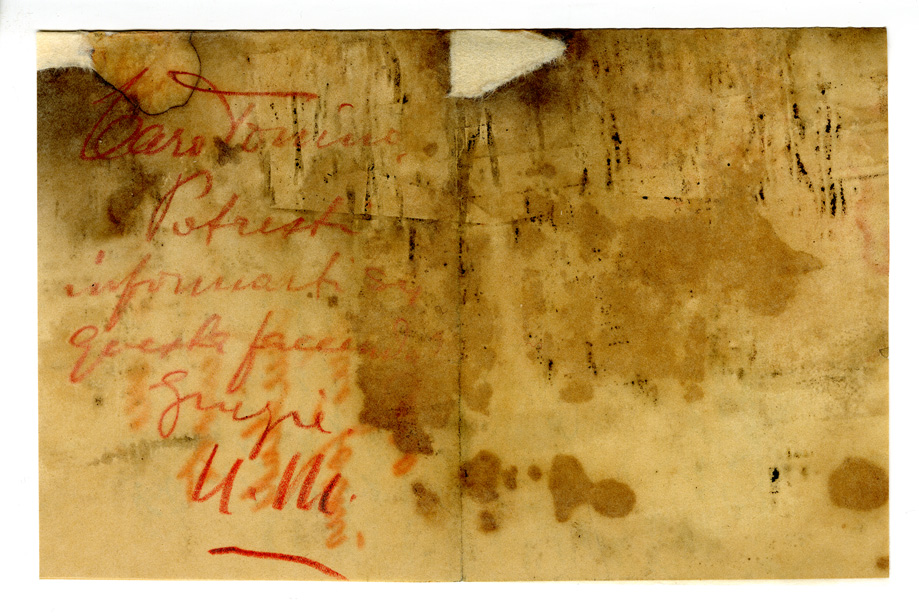 Caro Tonino,
Potresti
informarti su
questa faccenda
Grazie
U.M.